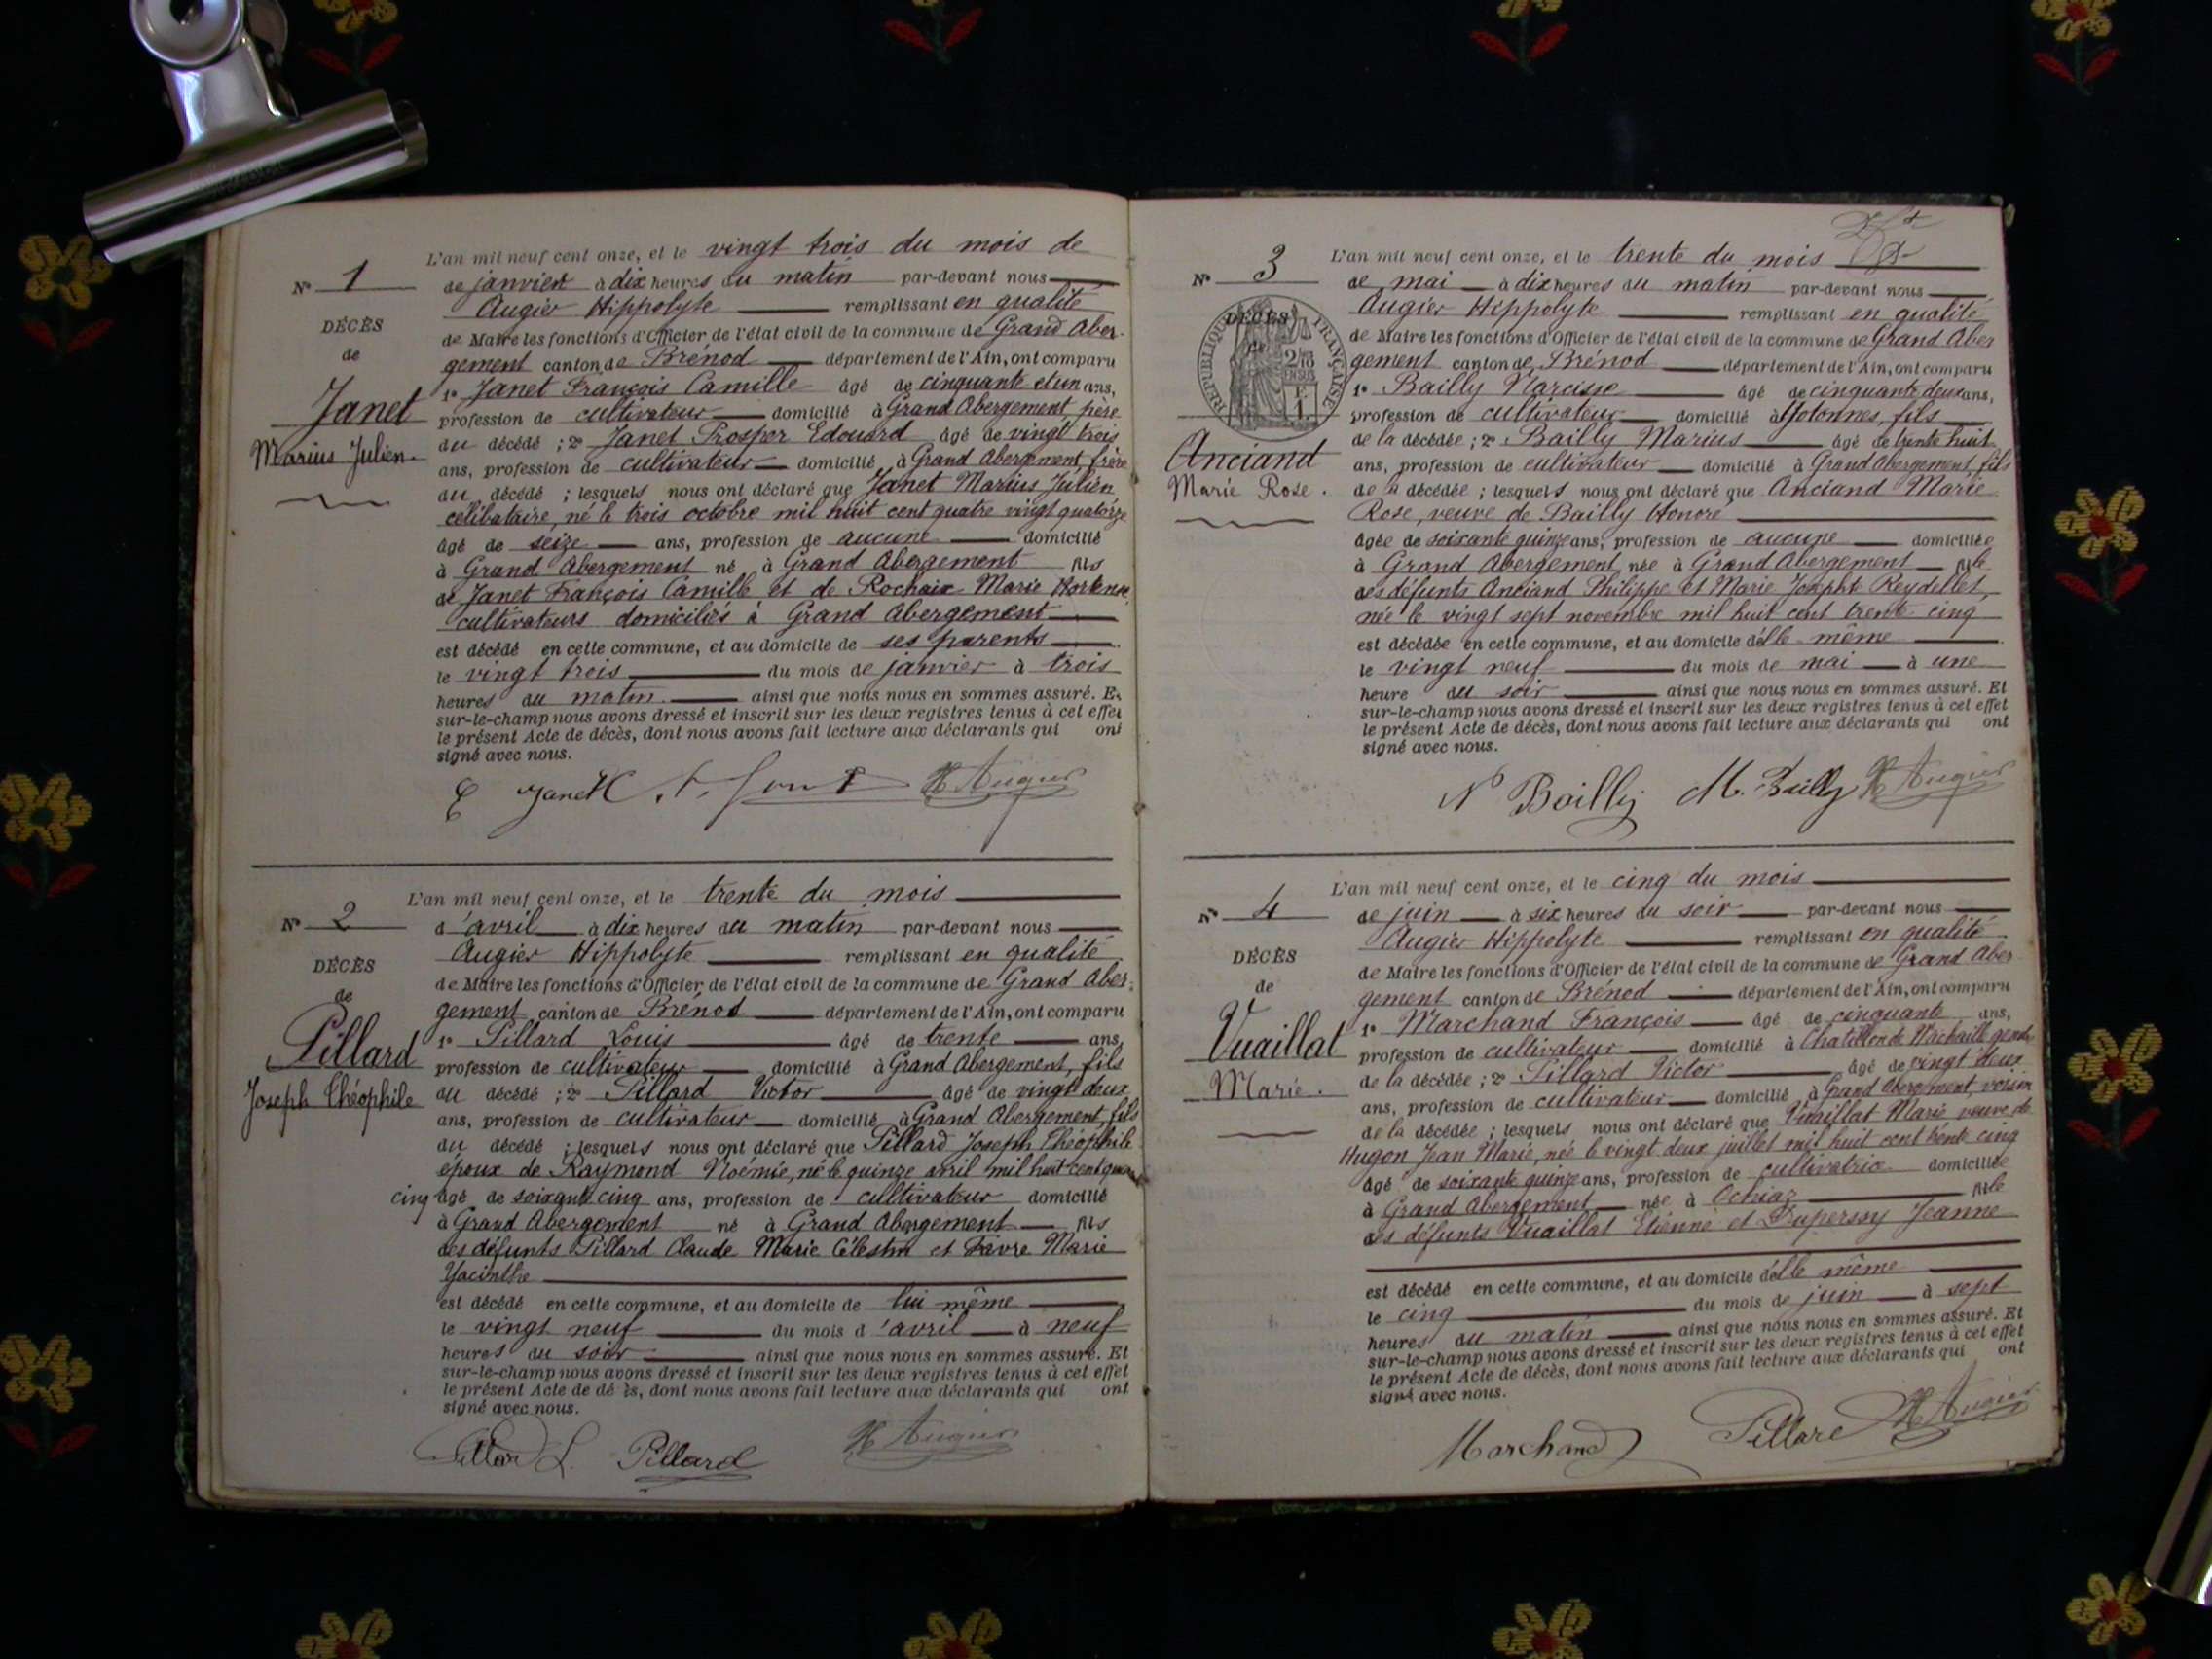 L'an mil neuf cent onze, et le vingt trois du mois de
N° 1
de janvier à dix heures du matin par-devant nous
Augier Hippolyte remplissant en qualité
DÉCÈS
de Maire les fonctions d'Officier de l'état civil de la commune de Grand Aber-
de
gement canton de Brénod département de l'Ain, ont comparu
1° Janet François Camille âgé de cinquante et un ans,
Janet
profession de cultivateur domicilié à Grand Abergement, père
Marius Julien.
du décédé ; 2° Janet Prosper Edouard âgé de vingt trois
ans, profession de cultivateur domicilié à Grand Abergement, frère
du décédé ; lesquels nous ont déclaré que Janet Marius Julien
célibataire, né le trois octobre mil huit cent quatre vingt quatorze
âgé de seize ans, profession de aucune domicilié
à Grand Abergement né à Grand Abergement fils
de Janet François Camille et de Rochaix Marie Hortense
cultivateurs domiciliés à Grand Abergement
est décédé en cette commune, et au domicile de ses parents
le vingt trois du mois de janvier à trois
heures du matin. ainsi que nous nous en sommes assuré. Et
sur-le-champ nous avons dressé et inscrit sur les deux registres tenus à cet effet
le présent Acte de décès, dont nous avons fait lecture aux déclarants qui ont
signé avec nous.
E Janet H Augier
L'an mil neuf cent onze, et le trente du mois
N° 2
d'avril à dix heures du matin par-devant nous
Augier Hippolyte remplissant en qualité
DÉCÈS
de Maire les fonctions d'Officier de l'état civil de la commune de Grand Aber-
de
gement canton de Brénod département de l'Ain, ont comparu
1° Pillard Louis âgé de trente ans,
Pillard
profession de cultivateur domicilié à Grand Abergement, fils
Joseph Théophile
du décédé ; 2° Pillard Victor âgé de vingt deux
ans, profession de cultivateur domicilié à Grand Abergement, fils
du décédé ; lesquels nous ont déclaré que Pillard Joseph Théophile
époux de Raymond Noémie, né le quinze avril mil huit cent quarante
cinq âgé de soixante cinq ans, profession de cultivateur domicilié
à Grand Abergement né à Grand Abergement fils
des défunts Pillard Claude Marie Célestin et Favre Marie
Yacinthe
est décédé en cette commune, et au domicile de lui même
le vingt neuf du mois d'avril à neuf
heures du soir ainsi que nous nous en sommes assuré. Et
sur-le-champ nous avons dressé et inscrit sur les deux registres tenus à cet effet
le présent Acte de dé ès, dont nous avons fait lecture aux déclarants qui ont
signé avec nous.
Pillard L. Pillard H Augier
L'an mil neuf cent onze, et le trente du mois
N° 3
de mai à dix heures du matin par-devant nous
Augier Hippolyte remplissant en qualité
DÉCÈS
de Maire les fonctions d'Officier de l'état civil de la commune de Grand Aber
de
RÉPUBLIQUE FRANÇAISE
gement canton de Brénod département de l'Ain, ont comparu
1° Bailly Narcisse âgé de cinquante deux ans,
profession de cultivateur domicilié à Hotonnes, fils
de la décédée ; 2° Bailly Marius âgé de trente huit
Anciand
ans, profession de cultivateur domicilié à Grand Abergement, fils
Marie Rose.
de la décédée ; lesquels nous ont déclaré que Anciand Marie
Rose, veuve de Bailly Honoré
âgée de soixante quinze ans, profession de aucune domiciliée
à Grand Abergement née à Grand Abergement fille
des défunts Anciand Philippe et Marie Josephte Reydellet,
née le vingt sept novembre mil huit cent trente cinq
est décédée en cette commune, et au domicile d'elle même
le vingt neuf du mois de mai à une
heure du soir ainsi que nous nous en sommes assuré. Et
sur-le-champ nous avons dressé et inscrit sur les deux registres tenus à cet effet
le présent Acte de décès, dont nous avons fait lecture aux déclarants qui ont
signé avec nous.
N Bailly M. Bailly H Augier
L'an mil neuf cent onze, et le cinq du mois
N° 4
de juin à six heures du soir par-devant nous
Augier Hippolyte remplissant en qualité
DÉCÈS
de Maire les fonctions d'Officier de l'état civil de la commune de Grand Aber
de
gement canton de Brénod département de l'Ain, ont comparu
1° Marchand François âgé de cinquante ans,
Vuaillat
profession de cultivateur domicilié à Chatillon de Michaille gendre
Marie.
de la décédée ; 2° Pillard Victor âgé de vingt deux
ans, profession de cultivateur domicilié à Grand Abergement, voisin
de la décédée ; lesquels nous ont déclaré que Vuaillat Marie veuve de
Hugon Jean Marie, née le vingt deux juillet mil huit cent trente cinq
âgé de soixante quinze ans, profession de cultivatrice domiciliée
à Grand Abergement née à Ochiaz fille
des défunts Vuaillat Etienne et Duperssy Jeanne
est décédé en cette commune, et au domicile d'elle même
le cinq du mois de juin à sept
heures du matin ainsi que nous nous en sommes assuré. Et
sur-le-champ nous avons dressé et inscrit sur les deux registres tenus à cet effet
le présent Acte de décès, dont nous avons fait lecture aux déclarants qui ont
signé avec nous.
Marchand Pillard H Augier